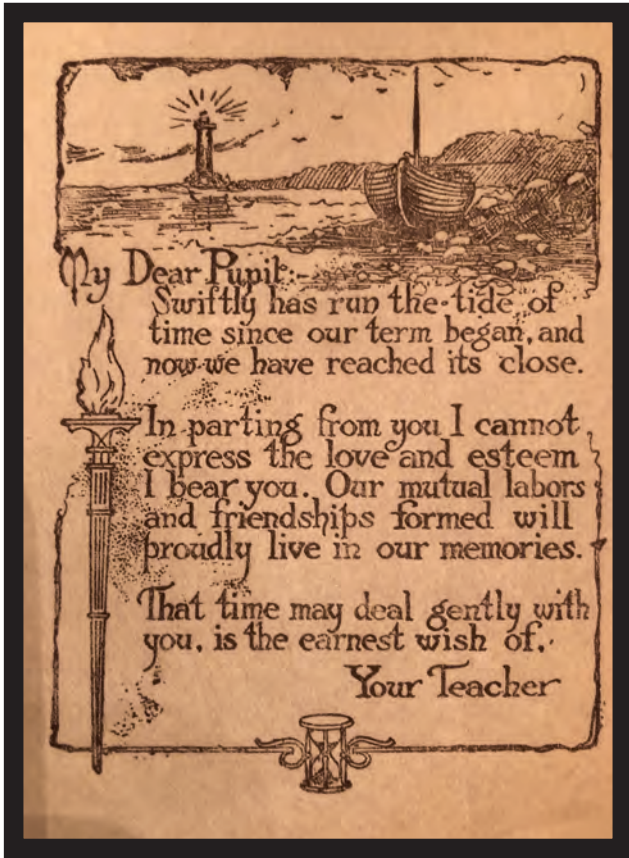 My Dear Pupil:-
Swiftly has run the tide of
time since our term began, and
now we have reached its close.
In parting from you I cannot
express the love and esteem
I bear you. Our mutual labors
and friendships formed will
proudly live in our memories.
That time may deal gently with
you, is the earnest wish of,
Your Teacher